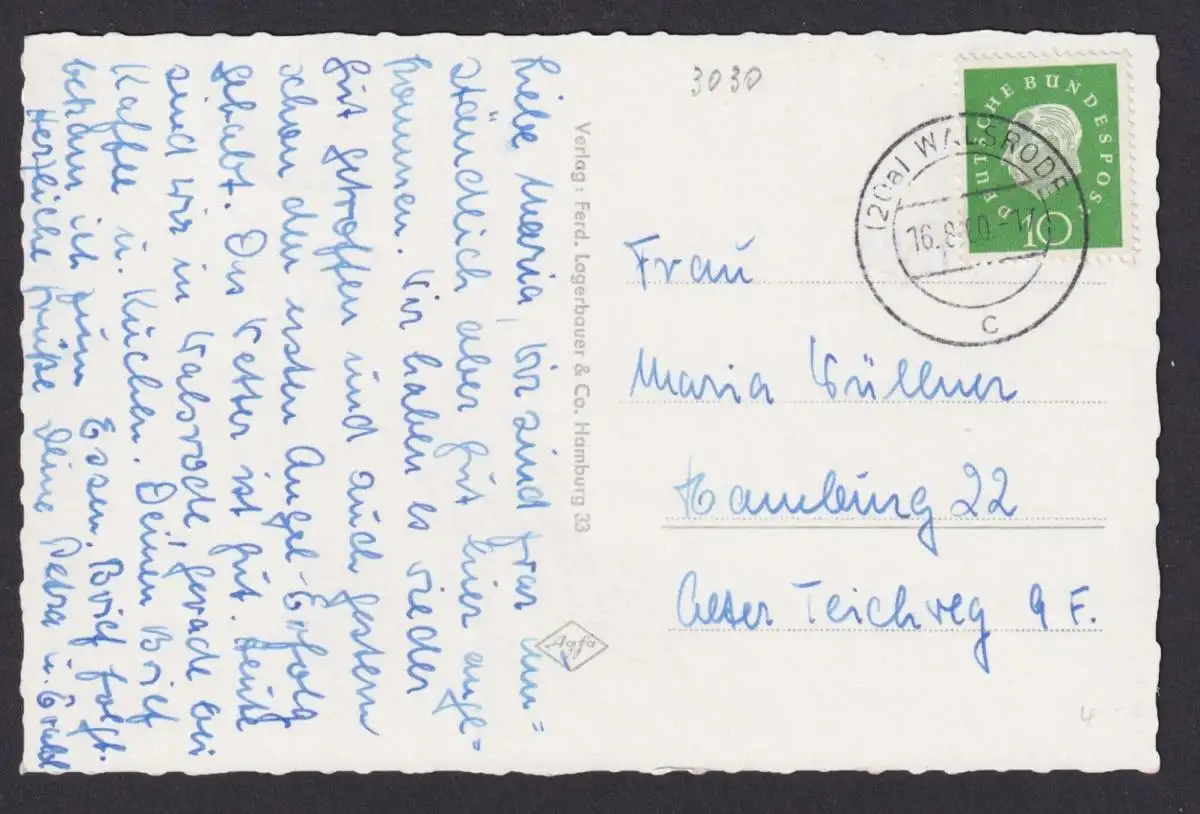 Liebe Maria, Wir sind zwar um=
ständlich aber gut hier ange=
kommen. Wir haben es wieder
gut getroffen und auch gestern
schon den ersten Angel-Erfolg
gehabt. Das Wetter ist gut. Heute
sind wir in Walsrode, gerade bei
Kaffee u. Kuchen. Deinen Brief
bekam ich zum Essen. Brief folgt.
Herzliche Grüße Deine Petra u. Ewald
Verlag: Ferd. Lagerbauer & Co. Hamburg 33
Agfa
3030
DEUTSCHE BUNDESPOST
10
(20a) WALSRODE
16.8.60.-17
c
Frau
Maria Wüllner
Hamburg 22
Alter Teichweg 9 F.
4